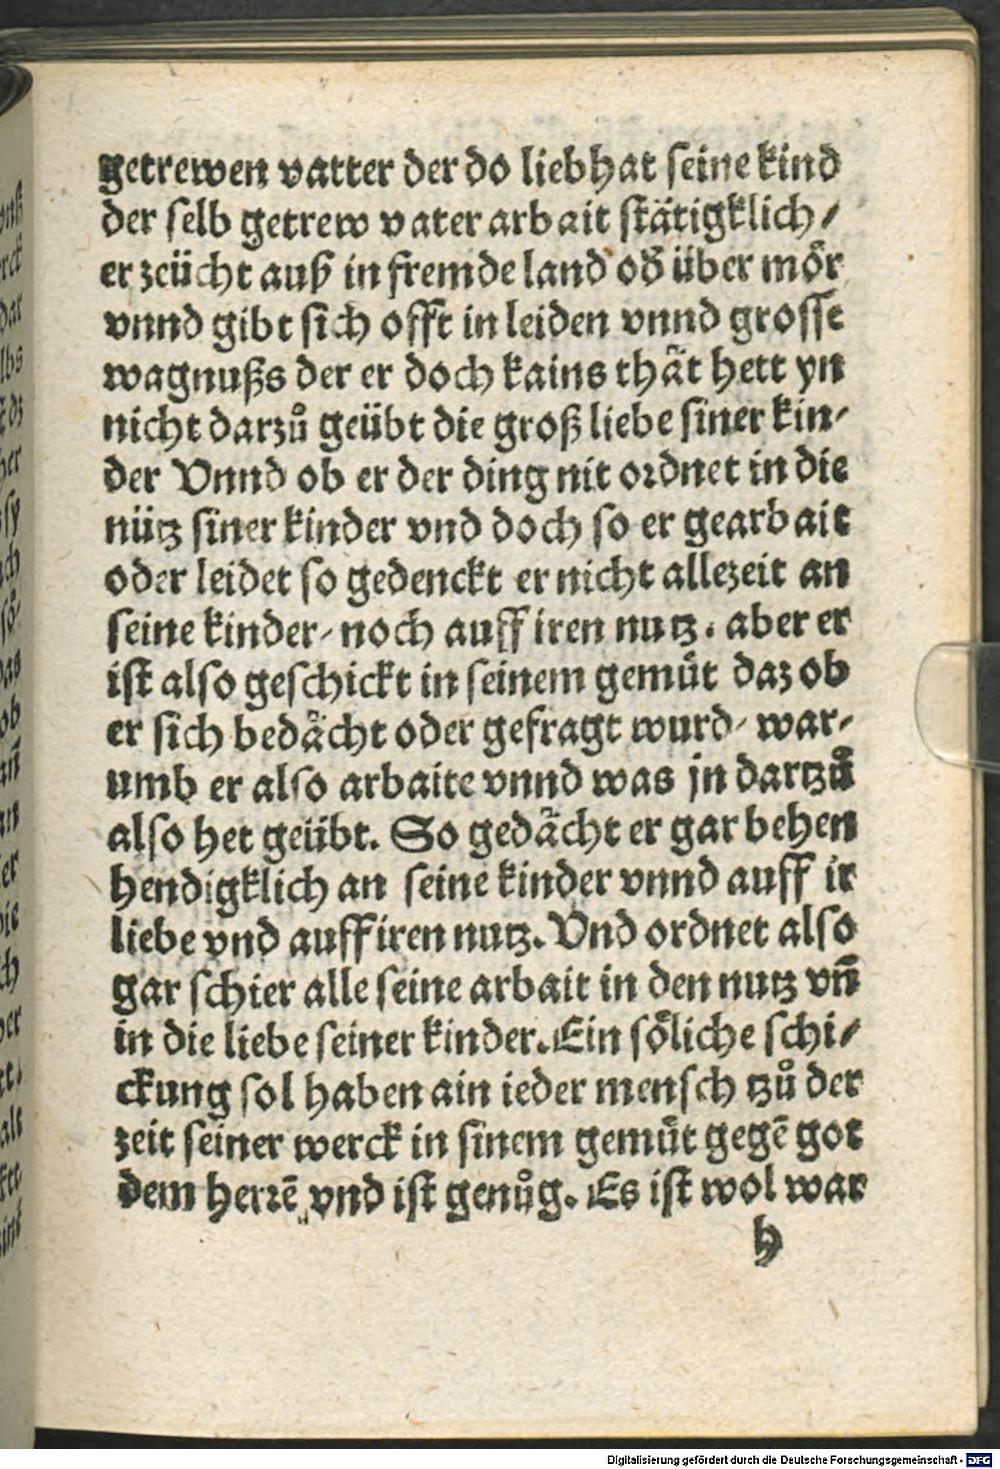 getrewen vatter der do lieb hat seine kind
der selb getrew vater arbait stätigklich/
er zeücht auß in fremde land od̃ über mör
vnnd gibt sich offt in leiden vnnd grosse
wagnußs der er doch kains thät hett yn
nicht darzů geübt die groß liebe siner kin-
der Vnnd ob er der ding nit ordnet in die
nütz siner kinder vnd doch so er gearbait
oder leidet so gedenckt er nicht allezeit an
seine kinder/ noch auff iren nutz. aber er
ist also geschickt in seinem gemůt daz ob
er sich bedächt oder gefragt wurd/ war-
umb er also arbaite vnnd was jn dartzů
also het geübt. So gedächt er gar behen
hendigklich an seine kinder vnnd auff ir
liebe vnd auff iren nutz. Vnd ordnet also
gar schier alle seine arbait in den nutz vñ
in die liebe seiner kinder. Ein söliche schi/
ckung sol haben ain ieder mensch tzů der
zeit seiner werck in sinem gemůt gegē got
dem herrē vnd ist genůg. Es ist wol war
h
Digitalisierung gefördert durch die Deutsche Forschungsgemeinschaft - DFG